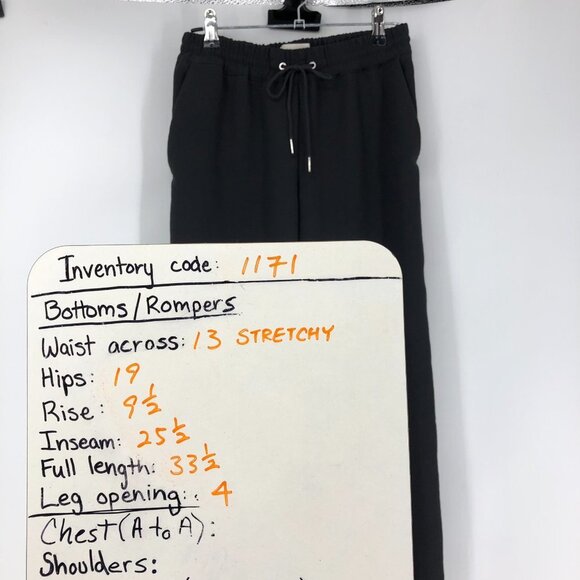 Inventory code: 1171
Bottoms/Rompers
Waist across: 13 STRETCHY
Hips: 19
Rise: 9 1/2
Inseam: 25 1/2
Full length: 33 1/2
Leg opening: 4
Chest (A to A):
Shoulders: